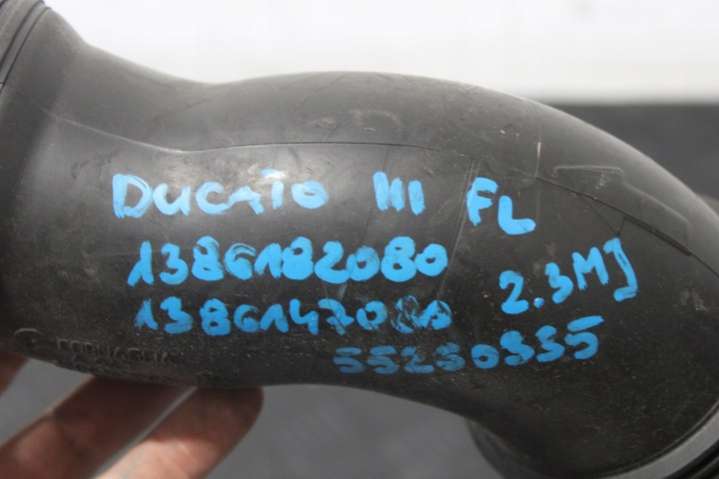 DUCATO III FL
1386182080
2.3MJ
1386147080
55250935